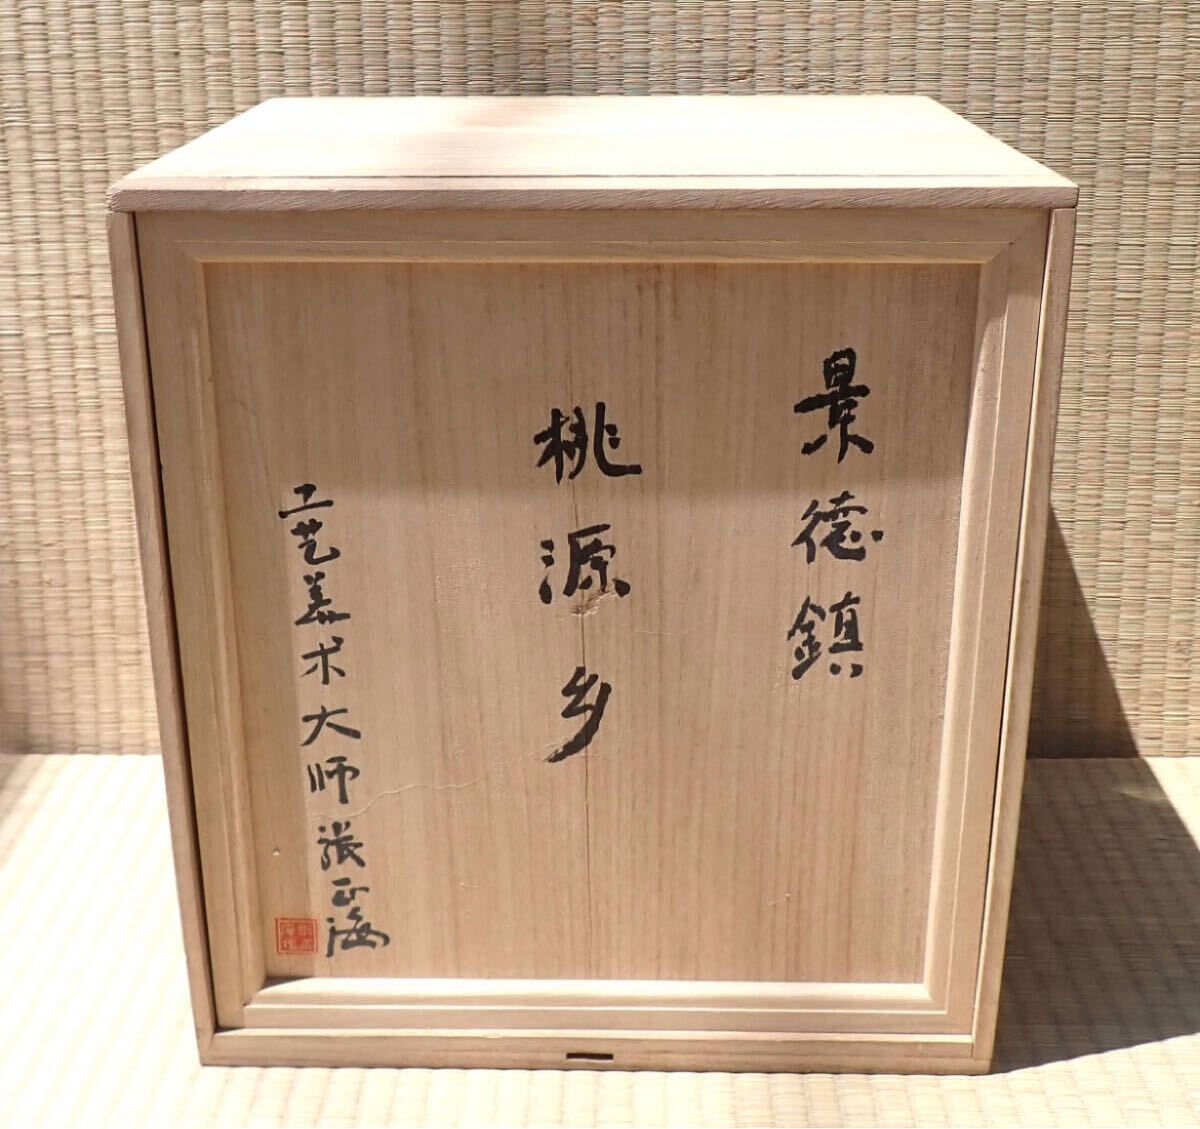 景德鎮
桃源乡
工艺美术大师张正海